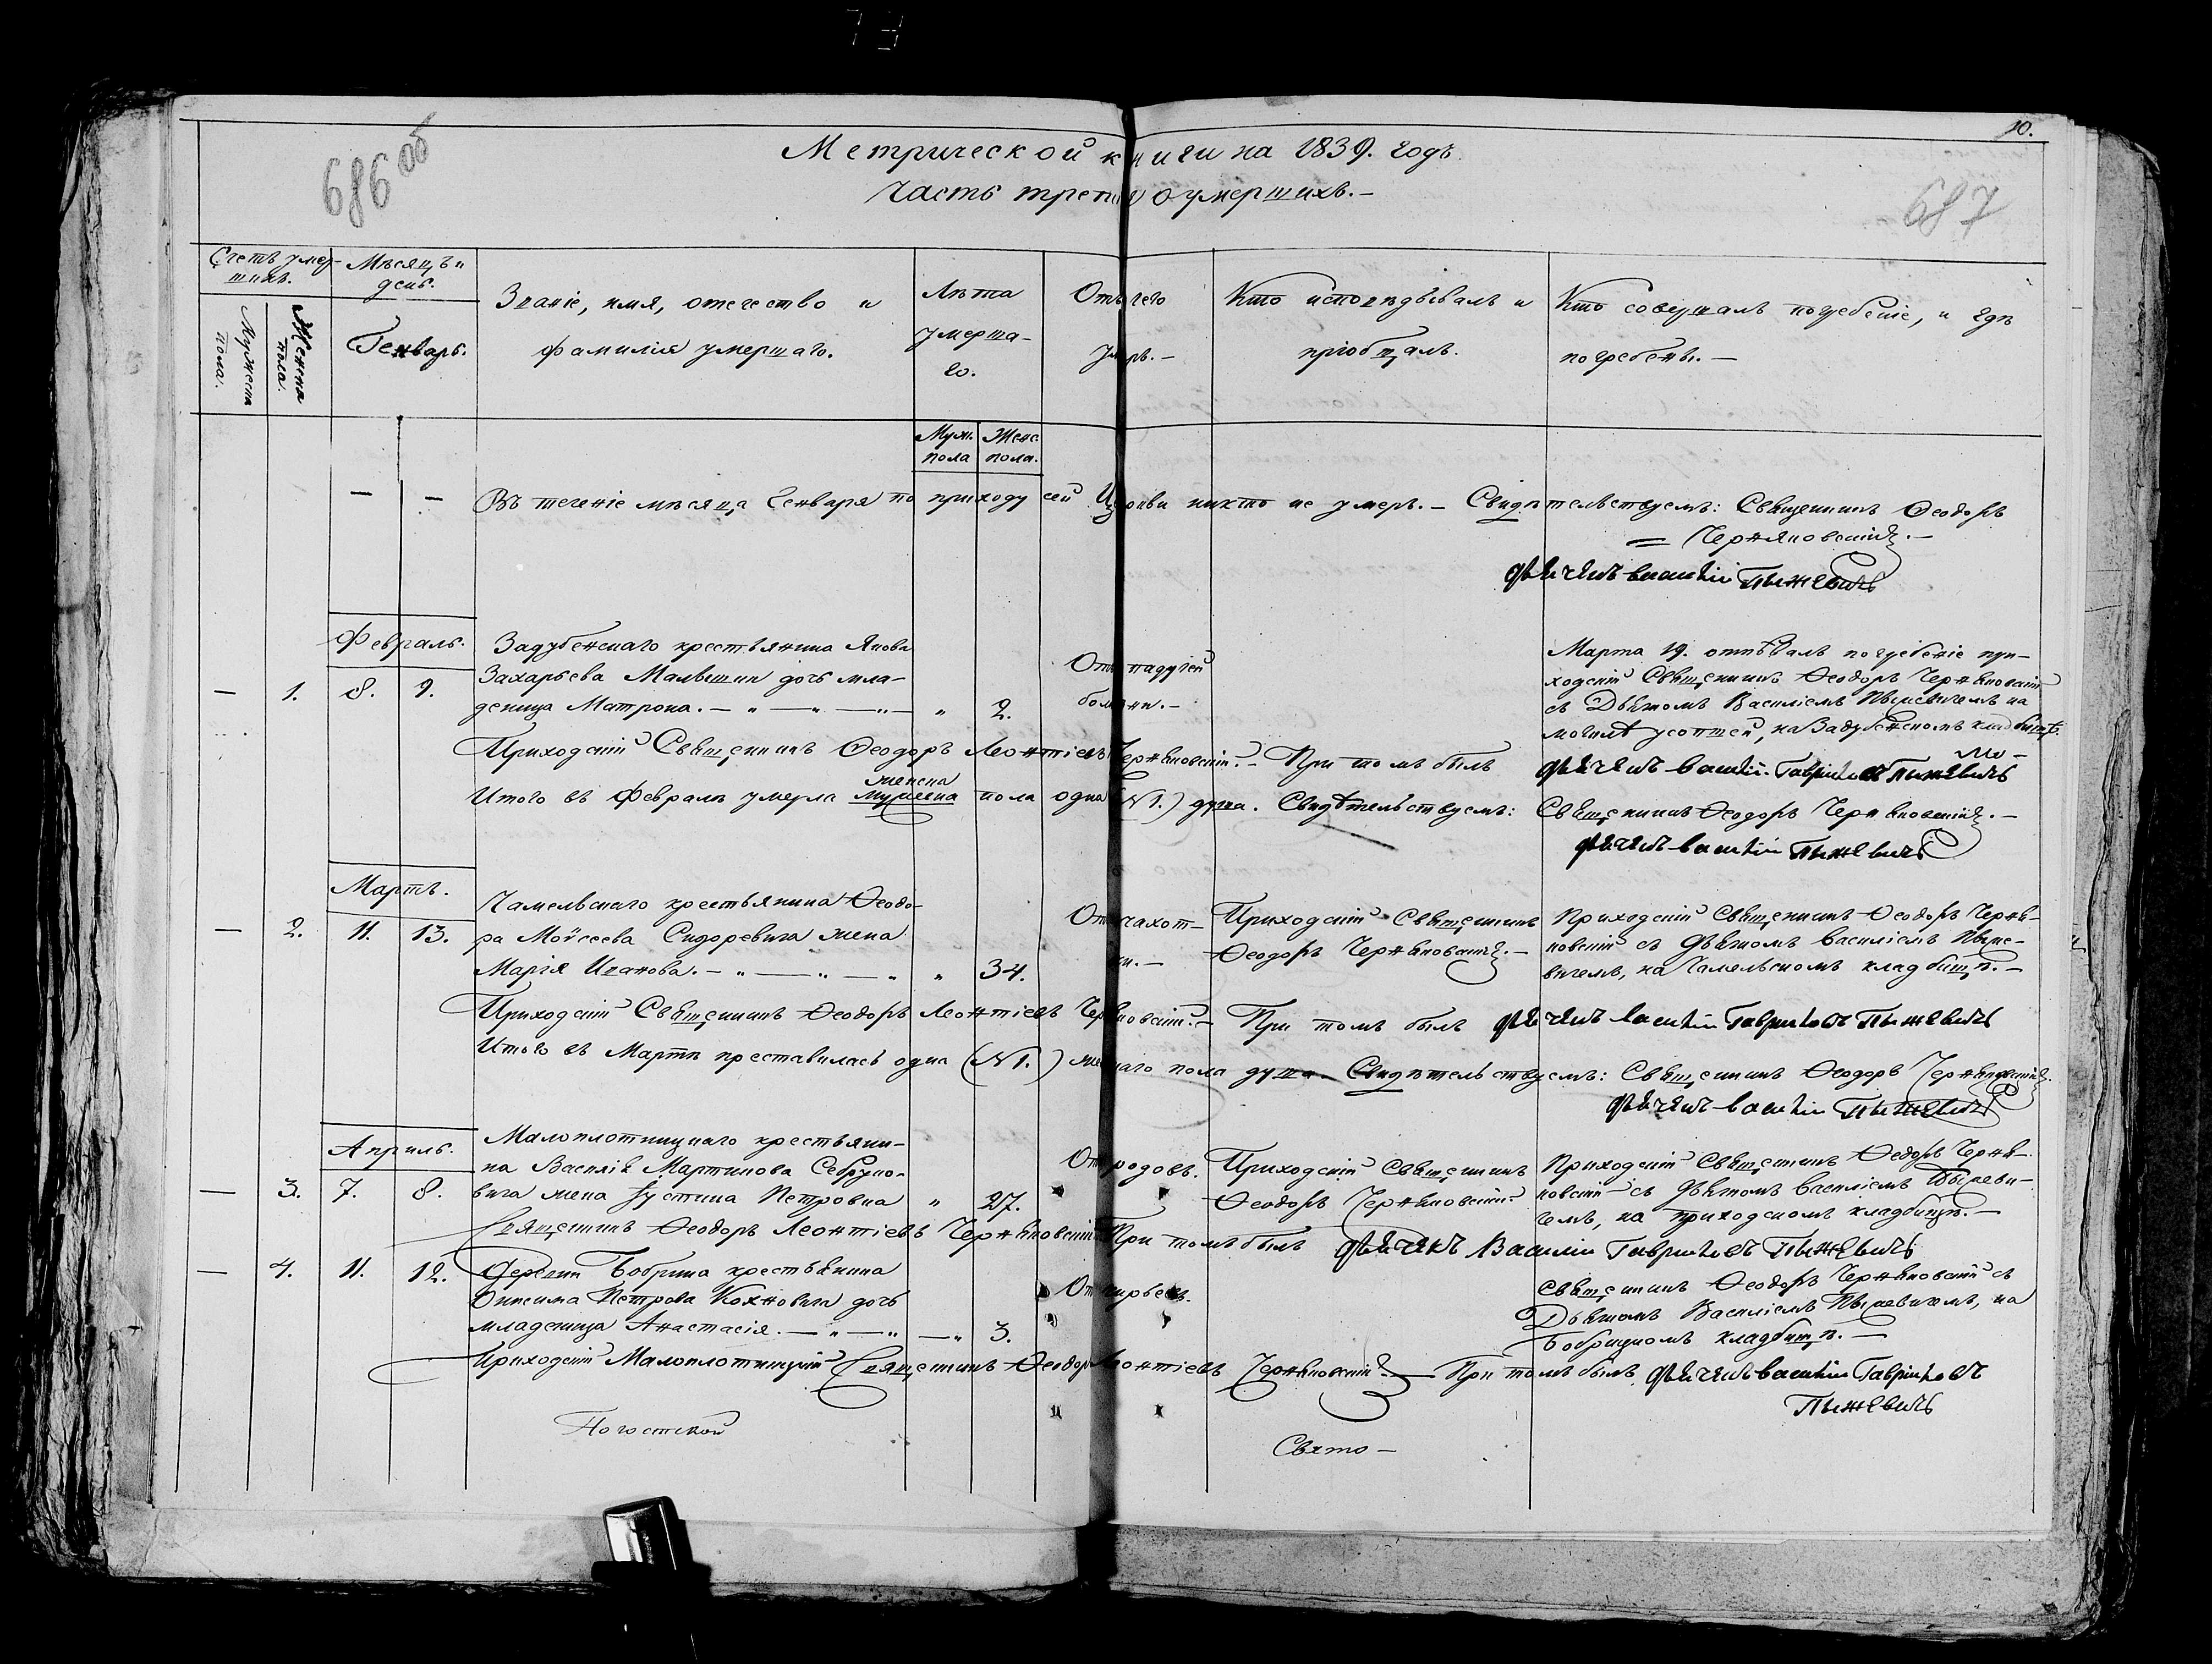 686 об
10.
687
Метрической книги на 1839. годъ
Часть третія о умершихъ.—
Счетъ умер-
шихъ.
Мужеска
пола.
Женска
пола.
Мѣсяцъ и
день.
Генварь.
Званіе, имя, отечество и
фамилія умершаго.
Лѣта
умерша-
го.
Муж.
пола
Женс.
пола.
Отъ чего
умеръ.—
Кто исповѣдывалъ и
пріобщалъ.
Кто совершалъ погребеніе, и гдѣ
погребены.—
— — Въ теченіе мѣсяца Генваря по приходу сей Церкви никто не умеръ.— Свидѣтельствуемъ: Священникъ Ѳеодоръ
= Черняковскій.—
Дьячекъ Василій Пыжевичь
Февраль.
— 1. 8. 9.
Задубенскаго крестьянина Якова
Захарьева Малышки дочь мла-
деница Матрона.— „ — „ — „ — „ 2.
Отъ падучей
болѣзни.—
Марта 19. отпѣвалъ погребеніе при-
ходскій Священникъ Ѳеодоръ Черняковскій
съ Дьякомъ Василіемъ Пыжевичемъ на
могилѣ усопшей, на Задубенскомъ кладбищѣ.
Приходскій Священникъ Ѳеодоръ Леонтіевъ Черняковскій.— При томъ былъ
Дьячекъ Василій Гавриловъ Пыжевичь
женска
Итого въ Февралѣ умерла мужеска пола одна (№ 1.) душа. Свидѣтельствуемъ: Священникъ Ѳеодоръ Черняковскій.—
Дьячекъ Василій Пыжевичь
Мартъ.
— 2. 11. 13.
Чамельскаго крестьянина Ѳеодо-
ра Моѵсеева Сидоревича жена
Марія Иванова.— „ — „ — „ „ 34.
Отъ чахот-
ки.—
Приходскій Священникъ
Ѳеодоръ Черняковскій.—
Приходскій Священникъ Ѳеодоръ Черня-
ковскій съ Дьякомъ Василіемъ Пыже-
вичемъ, на Чамельскомъ кладбищѣ.—
Приходскій Священникъ Ѳеодоръ Леонтіевъ Черняковскій.— При томъ былъ Дьячекъ Василій Гавриловъ Пыжевичь
Итого въ Мартѣ преставилась одна (№ 1.) женскаго пола душа. Свидѣтельствуемъ: Священникъ Ѳеодоръ Черняковскій.
Дьячекъ Василій Пыжевичь
Апрѣль.
— 3. 7. 8.
Малоплотницкаго крестьяни-
на Василія Мартинова Себруко-
вича жена Іустина Петровна „ 27.
Отъ родовъ.
Приходскій Священникъ
Ѳеодоръ Черняковскій.
Приходскій Священникъ Ѳеодоръ Черня-
ковскій съ Дьякомъ Василіемъ Пыжеви-
чемъ, на приходскомъ кладбищѣ.—
Священникъ Ѳеодоръ Леонтіевъ Черняковскій При томъ былъ Дьячекъ Василій Гавриловъ Пыжевичь
— 4. 11. 12.
Деревни Бобрика крестьянина
Онисима Петрова Кохновича дочь
младеница Анастасія.— „ — „ — „ 3.
Священникъ Ѳеодоръ Черняковскій съ
Дьякомъ Василіемъ Пыжевичемъ, на
Бобрицкомъ кладбищѣ.—
Приходскій Малоплотницкій Священникъ Ѳеодоръ Леонтіевъ Черняковскій.— При томъ былъ Дьячекъ Василій Гавриловъ
Пыжевичь
Погостской
Свято—